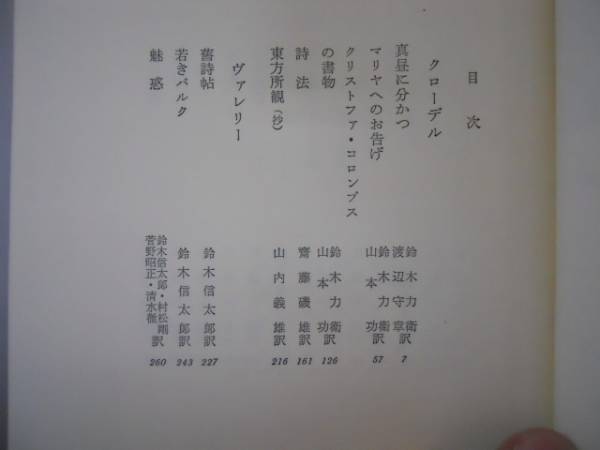 目次
クローデル
真昼に分かつ
鈴木力衛
渡辺守章訳
7
マリヤへのお告げ
鈴木力衛
山本功訳
57
クリストファ・コロンブス
の書物
鈴木力衛
山本功訳
126
詩法
齋藤磯雄訳
161
東方所観(抄)
山内義雄訳
216
ヴァレリー
舊詩帖
鈴木信太郎訳
227
若きパルク
鈴木信太郎訳
243
魅惑
鈴木信太郎・村松剛
菅野昭正・清水徹訳
260